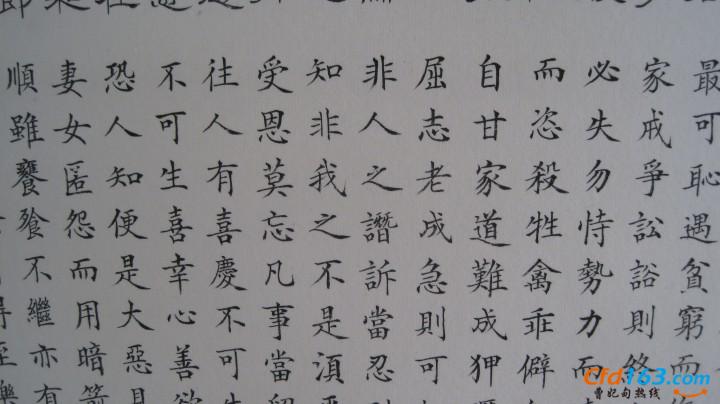 最可恥遇貧窮而
家戒爭訟訟則終
必失勿恃勢力而
而恣殺牲禽乖僻
自甘家道難成狎
屈志老成急則可
非人之譖訴當忍
知非我之不是湏
受恩莫忘凡事當留
往人有喜慶不可生
不可生喜幸心善欲
恐人知便是大惡
妻女匿怨而用暗箭
順雖饔飱不繼亦有
Cfd163.com
曹妃甸热线